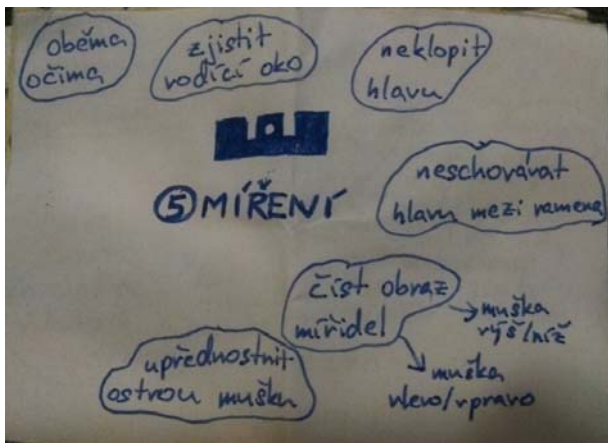 oběma
očima
zjistit
vodící oko
neklopit
hlavu
⑤ MÍŘENÍ
neschovávat
hlavu mezi ramena
číst obraz
mířidel
muška
výš/níž
muška
vlevo/vpravo
upřednostnit
ostrou mušku